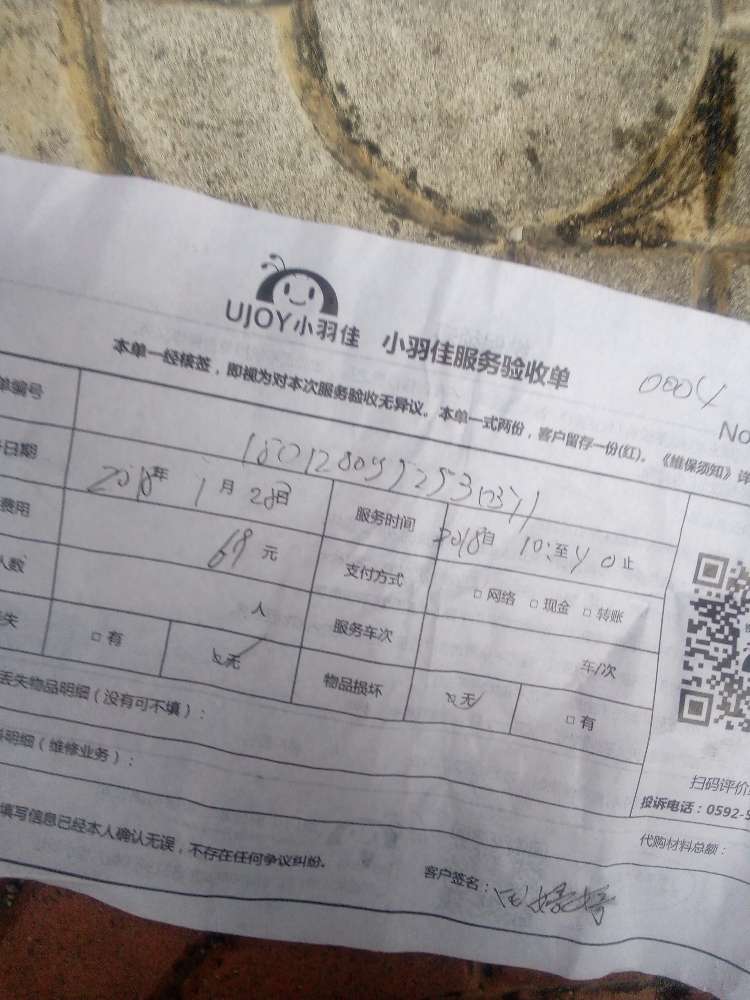 UJOY小羽佳 小羽佳服务验收单
0004
No
本单一经核签，即视为对本次服务验收无异议。本单一式两份，客户留存一份(红)。《维保须知》详
单编号
日期 2018年 1月 28日 服务时间 2018自 10:至 40止
费用 69元 支付方式 □网络 □现金 □转账
人数 人 服务车次 车/次
失 □有 □无 物品损坏 □无 □有
丢失物品明细（没有可不填）：
明细（维修业务）：
扫码评价
投诉电话：0592-5
代购材料总额：
填写信息已经本人确认无误，不存在任何争议纠纷。
客户签名：